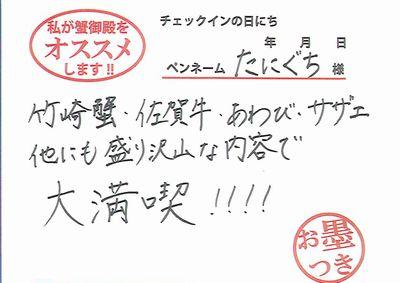 私が蟹御殿を
オススメ
します!!
チェックインの日にち
年 月 日
ペンネーム たにぐち 様
竹崎蟹・佐賀牛・あわび・サザエ
他にも盛り沢山な内容で
大満喫!!!!
お墨
つき